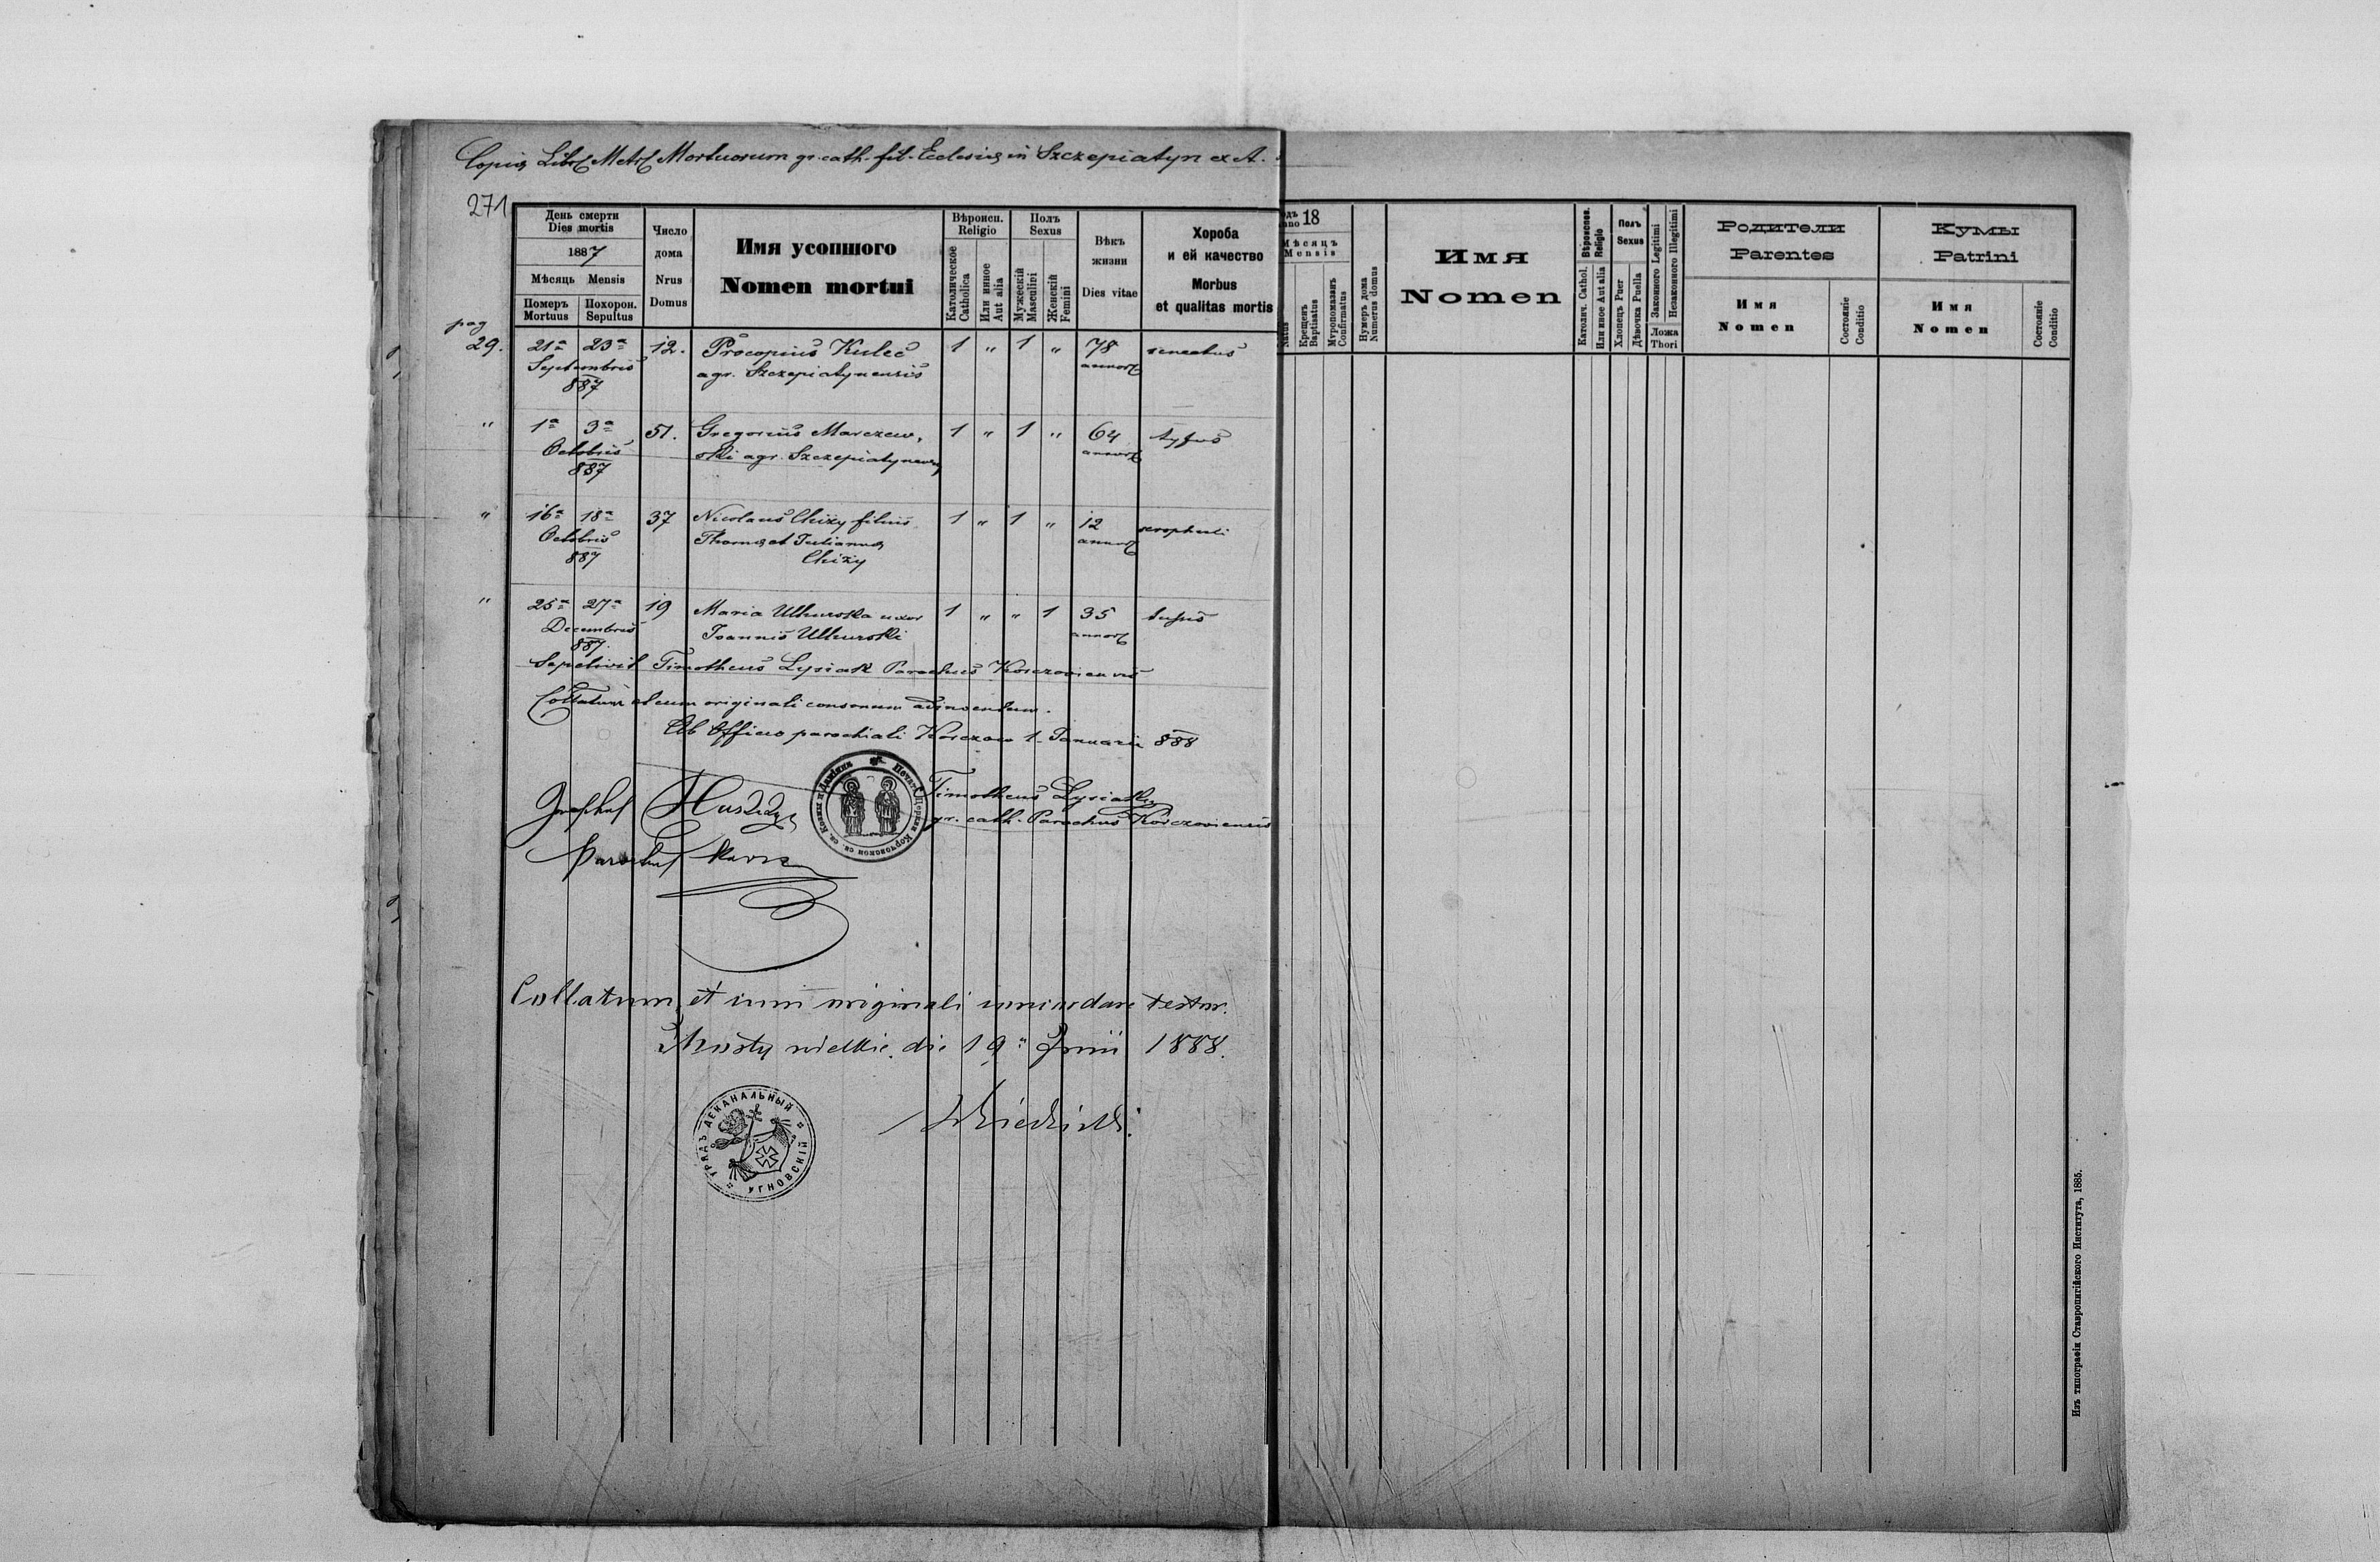 Copia Libri Metr. Mortuorum gr. cath. fil. Ecclesiæ in Szczepiatyn ex A.
271
День смерти
Dies mortis
1887
Мѣсяць Mensis
Померъ
Mortuus
Похорон.
Sepultus
Число
дома
Nrus
Domus
Имя усопшого
Nomen mortui
Вѣроисп.
Religio
Католическое
Catholica
Или инное
Aut alia
Полъ
Sexus
Мужескій
Masculini
Женскій
Femini
Вѣкъ
жизни
Dies vitae
Хороба
и ей качество
Morbus
et qualitas mortis
pag
29. 21a 23a 12. Procopius Kulec 1 " 1 " 78 senectus
Septembris agr. Szczepiatynensis annor
887
" 1a 3a 51. Gregorius Marczew, 1 " 1 " 64 tyfus
Octobris ski agr. Szczepiatynensis annor
887
" 16a 18a 37 Nicolaus Chiży filius 1 " 1 " 12 scrophuli
Octobris Thomæ et Julianna annor
887 Chiży
" 25a 27a 19 Maria Uhnuwska uxor 1 " " 1 35
Decembris Joannis annor
887.
Sepelivit Timotheus Lysiak Parochus Korczoviensis
Collatum et cum originali consonum adinventum.
Ab Officio parochiali Korczow 1. Januarii 888
Josephus
Parochus
Timotheus Lysiak
gr. cath. Parochus Korczoviensis
Collatum et cum originali concordare testor.
Mosty wielkie die 19a Junii 1888.
УРЯДЪ ДЕКАНАЛЬНЫЙ УГНОВСКІЙ
18
Мѣсяцъ
Mensis
Natus
Крещенъ
Baptisatus
Мѵропомазанъ
Confirmatus
Нумеръ дома
Numerus domus
Имя
Nomen
Вѣроиспов.
Religio
Католич. Cathol.
Или иное Aut alia
Полъ
Sexus
Хлопецъ Puer
Дѣвочка Puella
Законного Legitimi
Незаконного Illegitimi
Ложа
Thori
Родители
Parentes
Имя
Nomen
Состояніе
Conditio
Кумы
Patrini
Имя
Nomen
Состояніе
Conditio
Изъ типографіи Ставропигійского Института, 1885.